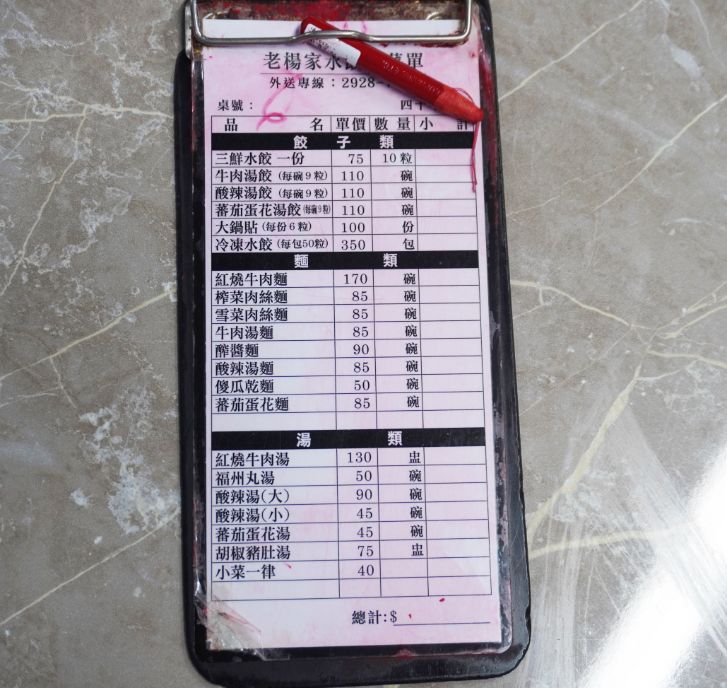 老楊家水 單
外送專線：2928-
桌號： 四十
品 名 單價 數量 小 計
餃子類
三鮮水餃 一份 75 10粒
牛肉湯餃 (每碗9粒) 110 碗
酸辣湯餃 (每碗9粒) 110 碗
蕃茄蛋花湯餃 (每碗9粒) 110 碗
大鍋貼 (每份6粒) 100 份
冷凍水餃 (每包50粒) 350 包
麵類
紅燒牛肉麵 170 碗
榨菜肉絲麵 85 碗
雪菜肉絲麵 85 碗
牛肉湯麵 85 碗
醡醬麵 90 碗
酸辣湯麵 85 碗
傻瓜乾麵 50 碗
蕃茄蛋花麵 85 碗
湯類
紅燒牛肉湯 130 盅
福州丸湯 50 碗
酸辣湯(大) 90 碗
酸辣湯(小) 45 碗
蕃茄蛋花湯 45 碗
胡椒豬肚湯 75 盅
小菜一律 40
總計:$